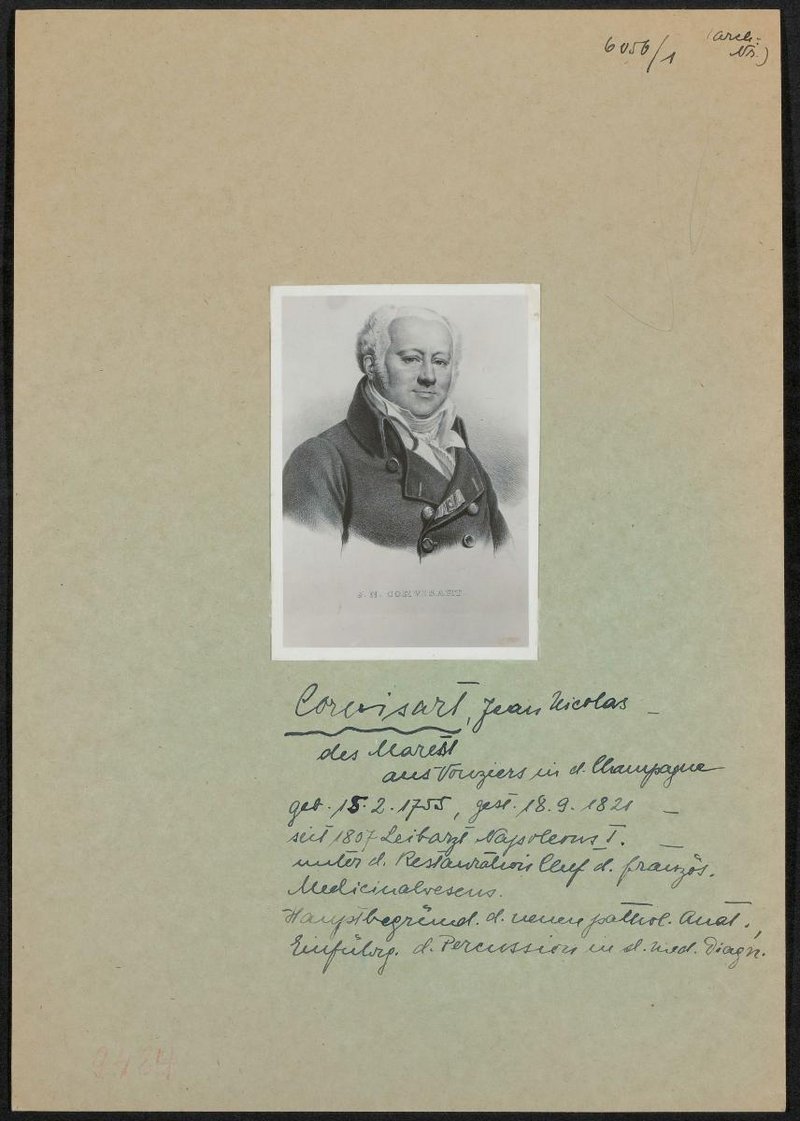 6056/1 (Arch. Nr.)
J. N. CORVISART.
Corvisart, Jean Nicolas —
des Marest
aus Vouziers in d. Champagne
geb. 15. 2. 1755, gest. 18. 9. 1821 —
seit 1807 Leibarzt Napoleons I. —
unter d. Restauration Chef d. französ.
Medicinalwesens.
Hauptbegründ. d. neuen pathol. Anat.,
Einführg. d. Percussion in d. med. Diagn.
9484